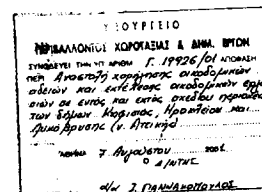 ΥΠΟΥΡΓΕΙΟ
ΠΕΡΙΒΑΛΛΟΝΤΟΣ ΧΩΡΟΤΑΞΙΑΣ & ΔΗΜ. ΕΡΓΩΝ
ΣΥΝΟΔΕΥΕΙ ΤΗΝ ΥΠ ΑΡΙΘΜ Γ. 19926/01 ΑΠΟΦΑΣΗ
ΠΕΡΙ Αναστολή χορήγησης οικοδομικών
αδειών και εκτέλεσης οικοδομικών εργα
σιών σε εντός και εκτός σχεδίου περιοχές
των δήμων Κηφισιάς, Ηρακλείου και
Λυκόβρυσης (ν. Αττικής)
ΑΘΗΝΑ 7 Αυγούστου 2001
Ο Δ/ΝΤΗΣ
α/α Σ. ΓΙΑΝΝΑΚΟΠΟΥΛΟΣ